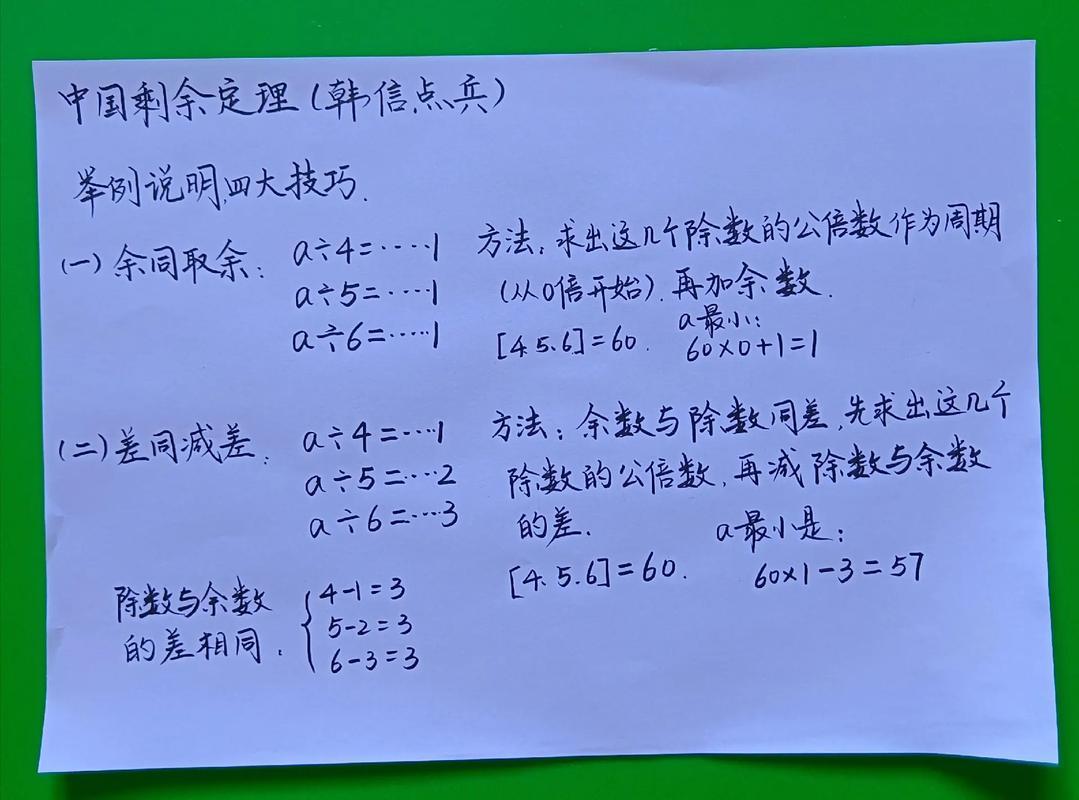 中国剩余定理(韩信点兵)
举例说明,四大技巧.
(一)余同取余: a÷4=·····1
a÷5=·····1
a÷6=·····1
方法:求出这几个除数的公倍数作为周期
(从0倍开始).再加余数.
[4.5.6]=60. a最小:
60×0+1=1
(二)差同减差: a÷4=···1
a÷5=···2
a÷6=···3
方法:余数与除数同差,先求出这几个
除数的公倍数,再减除数与余数
的差. a最小是:
[4.5.6]=60. 60×1-3=57
除数与余数
的差相同:
4-1=3
5-2=3
6-3=3